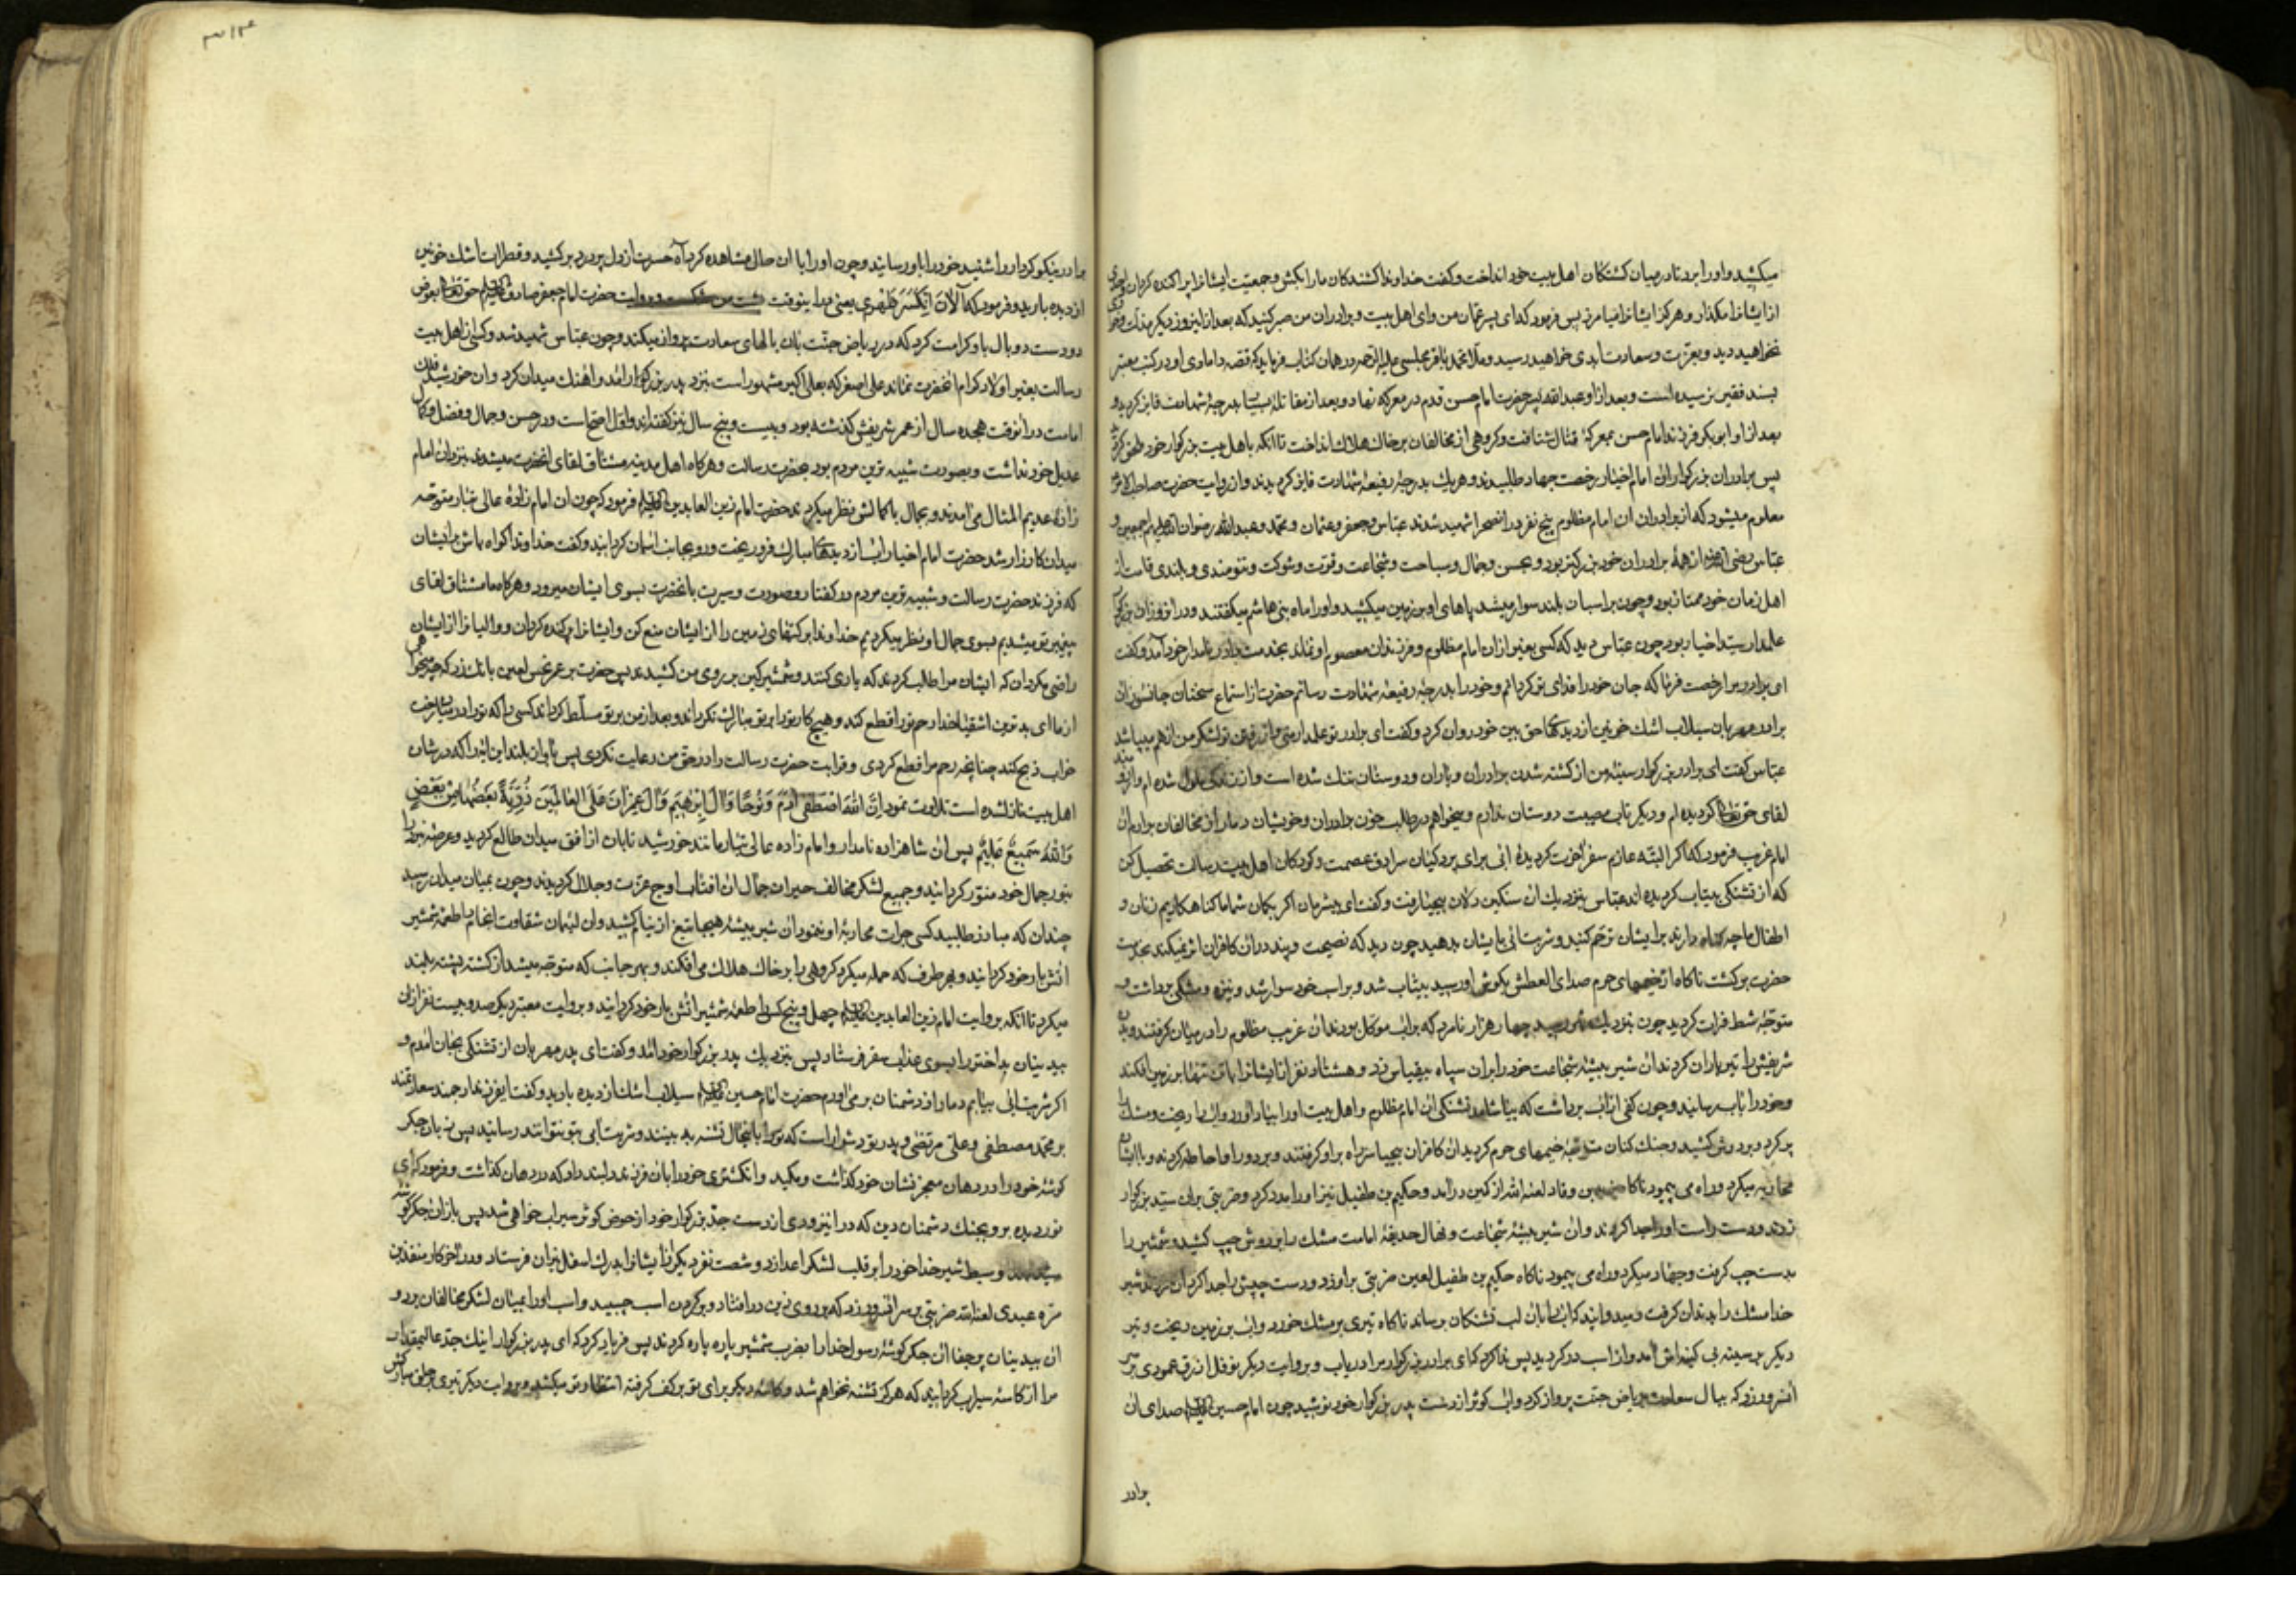 میکشید و او را برد تا در میان کشتکان اهل بیت خود انداخت و کفت خداوندا کشندکان ما را بکش و جمعیت ایشانرا پراکنده کردان و احدی
از ایشانرا مکذار و هرکز ایشانرا میامرز پس فرمود که ای پسر عمان من و ای اهل بیت و برادران من صبر کنید که بعد از این روز دیکر مذلت و خواری
نخواهید دید و بعزت و سعادت ابدی خواهید رسید و ملا محمد باقر مجلسی علیه الرحمه در همان کتاب فرماید که قصه دامادی او در کتب معتبر
بسند فقیر نرسیده است و بعد از او عبدالله پسر حضرت امام حسن قدم در معرکه نهاد و بعد از مقاتله بسیار بدرجهٔ شهادت فایز کردید و
بعد از او ابوبکر فرزند امام حسن بمعرکهٔ قتال شتافت و کروهی از مخالفان بر خاک هلاک انداخت تا انکه باهل بیت بزرکوار خود ملحق کردید
پس برادران بزرکوار ان امام اخیار رخصت جهاد طلبیدند و هریک بدرجهٔ رفیعهٔ شهادت فایز کردیدند و از روایت حضرت صاحب الامر
معلوم میشود که از برادران ان امام مظلوم پنج نفر در انصحرا شهید شدند عباس و جعفر و عثمان و محمد و عبدالله رضوان الله علیهم اجمعین و
عباس رضی الله عنه از همهٔ برادران خود بزرکتر بود و بحسن و جمال و سباحت و شجاعت و قوت و شوکت و تنومندی و بلندی قامت از
اهل زمان خود ممتاز بود و چون بر اسبان بلند سوار میشد پاهای او بر زمین میکشید و او را ماه بنی هاشم میکفتند و در ان روز ان بزرکوار
علمدار سید اخیار بود چون عباس دید که کسی بغیر از ان امام مظلوم و فرزندان معصوم او نماند بخدمت برادر نامدار خود آمد و کفت
ای برادر مرا رخصت فرما که جان خود را فدای تو کردانم و خود را بدرجهٔ رفیعهٔ شهادت رسانم حضرت از استماع سخنان جانسوز ان
برادر مهربان سیلاب اشک خونین از دیدهٔ حق بین خود روان کرد و کفت ای برادر تو علمدار منی و از رفتن تو لشکر من از هم میپاشد
عباس کفت ای برادر بزرکوار سینهٔ من از کشته شدن برادران و یاران و دوستان تنک شده است و از زندکی ملول شده ام و آرزومند
لقای حق تعالی کردیده ام و دیکر تاب مصیبت دوستان ندارم و میخواهم در طلب خون برادران و خویشان دمار از مخالفان برارم ان
امام غریب فرمود که اکر البته عازم سفر اخرت کردیدهٔ ابی برای پردکیان سرادق عصمت و کودکان اهل بیت رسالت تحصیل کن
که از تشنکی بیتاب کردیده اند عباس بنزدیک ان سنکین دلان بیحیا رفت و کفت ای بیشرمان اکر بکمان شما ما کناهکاریم زنان و
اطفال ما چه کناه دارند بر ایشان ترحم کنید و شربت ابی بایشان بدهید چون دید که نصیحت و پند در ان کافران اثر نمیکند بخدمت
حضرت برکشت ناکاه از خیمهای حرم صدای العطش بکوش او رسید بیتاب شد و بر اسب خود سوار شد و نیزه و مشکی برداشت و
متوجه شط فرات کردید چون بنزدیک شط رسید چهار هزار نامرد که بر اب موکل بودند ان غریب مظلوم را در میان کرفتند و بدن
شریفش را تیر باران کردند ان شیر بیشهٔ شجاعت خود را بر ان سپاه بیقیاس زد و هشتاد نفر از ایشانرا بر زمین افکند
و خود را باب رسانید و چون کفی از اب برداشت که بیاشامد تشنکی ان امام مظلوم و اهل بیت او را بیاد آورد و اب را ریخت و مشک را
پر کرد و بر دوش کشید و جنک کنان متوجه خیمهای حرم کردید ان کافران بیحیا سر راه بر او کرفتند و بر دور او احاطه کردند و با ایشان
محاربه میکرد و راه می پیمود ناکاه زید بن وقاد لعنه الله از کمین در آمد و حکیم بن طفیل نیز او را مدد کرد و ضربتی بر ان سید بزرکوار
زدند و دست راست او را جدا کردند و ان شیر بیشهٔ شجاعت و نهال حدیقهٔ امامت مشک را بر دوش چپ کشید و شمشیر را
بدست چپ کرفت و جهاد میکرد و راه می پیمود ناکاه حکیم بن طفیل لعین ضربتی بر او زد و دست چپش را جدا کرد ان فرزند شیر
خدا مشک را بدندان کرفت و میدوانید که اب را بان لب تشنکان برساند ناکاه تیری بر مشک خورد و اب بر زمین ریخت و تیر
دیکر بر سینه بی کینه اش آمد و از اسب در کردید پس ندا کرد که ای برادر بزرکوار مرا دریاب و بروایت دیکر نوفل ازرق عمودی بر سر
انسرور زد که ببال سعادت بریاض جنت پرواز کرد و اب کوثر از دست پدر بزرکوار خود نوشید چون امام حسین علیه السلام صدای ان
برادر
۳۱۴
برادر نیکو کردار را شنید خود را باو رسانید و چون او را با ان حال مشاهده کرد آه حسرت از دل پر درد برکشید و قطرات اشک خونین
از دیده بارید و فرمود که آلان انکسر ظهری یعنی در اینوقت پشت من شکست و روایت حضرت امام جعفر صادق علیه السلام حق تعالی بعوض
دو دست دو بال باو کرامت کرد که در ریاض جنت بان بالهای سعادت پرواز میکند و چون عباس شهید شد و کسی از اهل بیت
رسالت بغیر اولاد کرام انحضرت نماند علی اصغر که بعلی اکبر مشهور است بنزد پدر بزرکوار آمد و اهنک میدان کرد و ان خورشید فلک
امامت در آنوقت هجده سال از عمر شریفش کذشته بود و بیست و پنج سال نیز کفته اند و اول اصح است و در حسن و جمال و فضل و کمال
عدیل خود نداشت و بصورت شبیه ترین مردم بود بحضرت رسالت و هرکاه اهل مدینه مشتاق لقای انحضرت میشدند بنزد ان امام
زادهٔ عدیم المثال می آمدند و بجمال با کمالش نظر میکردند حضرت امام زین العابدین علیه السلام فرمود که چون ان امام زادهٔ عالی تبار متوجه
میدان کارزار شد حضرت امام اخیار اب از دیدهای مبارک فرو ریخت و رو بجانب اسمان کردانید و کفت خداوندا کواه باش بر ایشان
که فرزند حضرت رسالت و شبیه ترین مردم در کفتار و صورت و سیرت بانحضرت بسوی ایشان میرود و هرکاه ما مشتاق لقای
پیغمبر تو میشدیم بسوی جمال او نظر میکردیم خداوندا برکتهای زمین را از ایشان منع کن و ایشانرا پراکنده کردان و والیانرا از ایشان
راضی مکردان که ایشان مرا طلب کردند که یاری کنند و شمشیر کین بر روی من کشیدند پس حضرت بر عمر نحس لعین بانک زد که چه میخواهی
از ما ای بدترین اشقیا خدا رحم تو را قطع کند و هیچ کار تو را بر تو مبارک نکرداند و بعد از من بر تو مسلط کرداند کسی را که تو را در میان رخت
خواب ذبح کند چنانچه رحم مرا قطع کردی و قرابت حضرت رسالت را در حق من رعایت نکردی پس باواز بلند این ایه را که در شان
اهل بیت نازل شده است تلاوت نمود اِنَّ اللهَ اصْطَفی ادَمَ وَ نُوحًا وَ الَ اِبْرهِیمَ وَ الَ عِمْرانَ عَلَی الْعالَمِینَ ذُرِّیَّةً بَعْضُها مِنْ بَعْضٍ
وَاللهُ سَمِیعٌ عَلِیمٌ پس ان شاهزاده نامدار و امام زاده عالی تبار مانند خورشید تابان از افق میدان طالع کردید و عرصه نبرد را
بنور جمال خود منور کردانید و جمیع لشکر مخالف حیران جمال ان افتاب اوج عزت و جلال کردیدند و چون بمیان میدان رسید
چندان که مبارز طلبید کسی جرات محاربهٔ او ننمود ان شیر بیشهٔ هیجا تیغ از نیام کشید و ان لئیمان شقاوت انجام را طعمهٔ شمشیر
اتش بار خود کردانید و بهر طرف که حمله میکرد کروهی را بر خاک هلاک می افکند و بهر جانب که متوجه میشد از کشته پشته بلند
میکرد تا انکه بروایت امام زین العابدین علیه السلام چهل و پنج کس را طعمهٔ شمشیر اتش بار خود کردانید و بروایت معتبر دیکر صد و بیست نفر از ان
بیدینان بداختر را بسوی عذاب سقر فرستاد پس بنزدیک پدر بزرکوار خود آمد و کفت ای پدر مهربان از تشنکی بجان آمدم و
اکر شربت ابی بیابم دمار از دشمنان بر می آورم حضرت امام حسین علیه السلام سیلاب اشک از دیده بارید و کفت ای فرزند ارجمند سعادتمند
بر محمد مصطفی و علی مرتضی و پدر تو دشوار است که تو را باینحال تشنه بینند و شربت ابی بتو نتوانند رسانید پس زبان جکر
کوشهٔ خود را در دهان معجز نشان خود کذاشت و مکید و انکشتری خود را بان فرزند دلبند داد که در دهان کذاشت و فرمود که ای
نور دیده برو بجنک دشمنان دین که در اینزودی از دست جد بزرکوار خود از حوض کوثر سیراب خواهی شد پس باز ان جکر کوشه
سید شهدا و سبط شیر خدا خود را بر قلب لشکر اعدا زد و شصت نفر دیکر از ایشانرا بدرک اسفل نیران فرستاد و در آخر کار منقذ بن
مره عبدی لعنه الله ضربتی بر سر انسرور زد که بر روی زین در افتاد و بر کردن اسب چسبید و اسب او را بمیان لشکر مخالفان برد و
ان بیدینان پر جفا ان جکر کوشهٔ رسول خدا را بضرب شمشیر پاره پاره کردند پس فریاد کرد که ای پدر بزرکوار اینک جد عالیمقدار
مرا از کاسهٔ سیراب کردانید که هرکز تشنه نخواهم شد و کاسهٔ دیکر برای تو بر کف کرفته انتظار تو میکشد و بروایت دیکر تیری بر حلق مبارکش